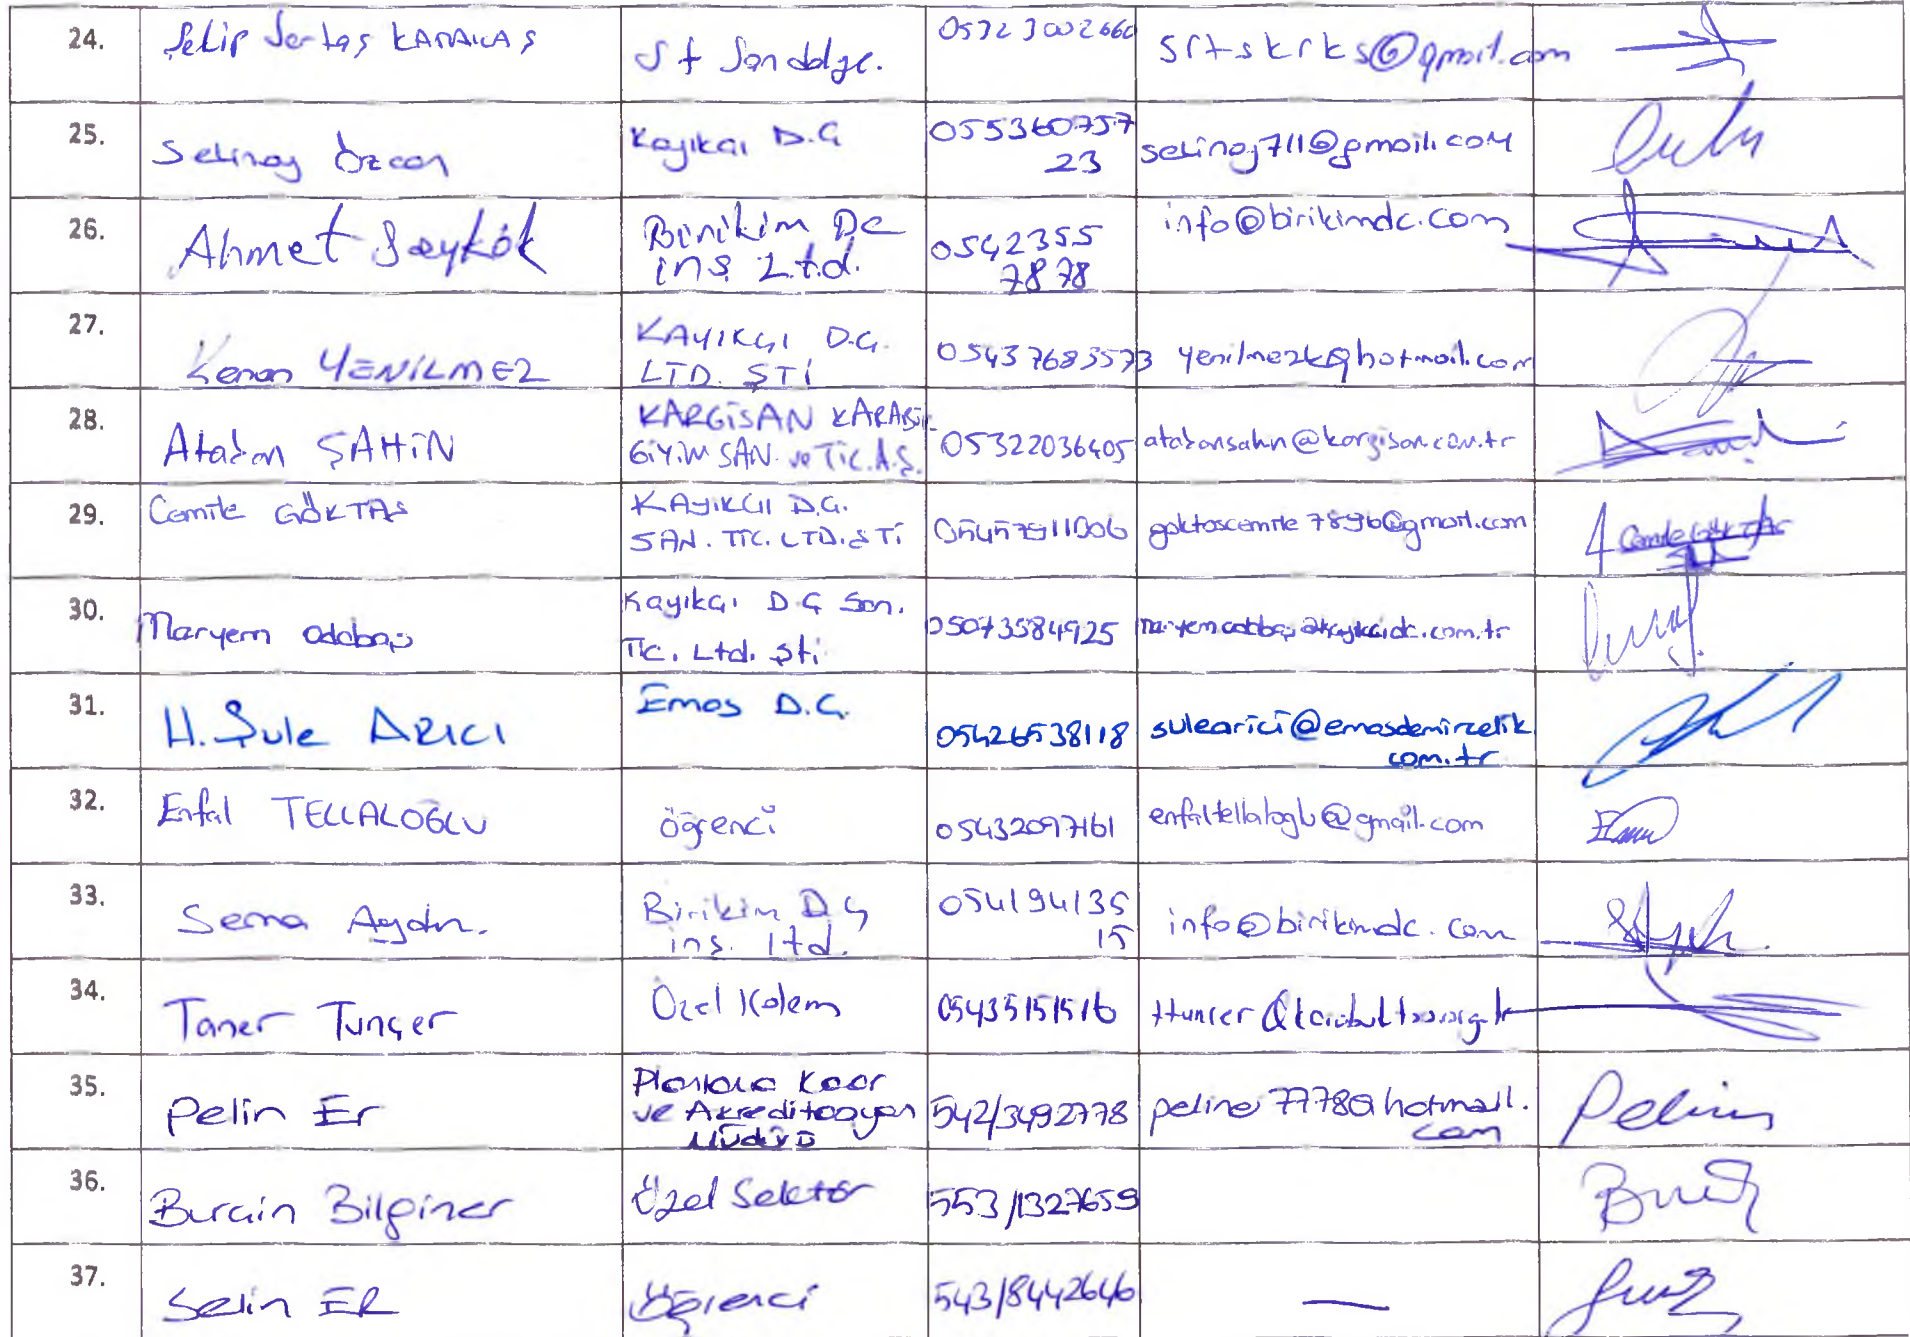 24. Şekip Sertaş KARAKAŞ St Sandalye. 05323002660 srtskrks@gmail.com
25. Selinay Özcan Kayıkcı D.Ç 055360757
23 selinay711@gmail.com
26. Ahmet Saykök Birikim DÇ
inş Ltd. 0542355
7878 info@birikimdc.com
27. Kenan YENİLMEZ KAYIKÇI D.Ç.
LTD. ŞTİ 05437683573 yenilmezk@hotmail.com
28. Atakan ŞAHİN KARGİSAN KARABÜK
GİYİM SAN. ve TİC. A.Ş. 05322036405 atakansahin@kargisan.com.tr
29. Cemile GÖKTAŞ KAYIKÇI D.Ç.
SAN. TİC. LTD. ŞTİ goktascemile7896@gmail.com Cemile GÖKTAŞ
30. Meryem odabaş Kayıkçı D Ç San.
Tic. Ltd. Şti 05073584925
31. H. Şule ARICI Emas D.Ç. 05426538118 sulearici@emasdemircelik
com.tr
32. Enfal TELLALOĞLU öğrenci 05432097161 enfaltellaloglu@gmail.com
33. Sema Aydın. Birikim D Ç
inş. ltd. 054194135
15 info@birikimdc.com
34. Taner Tunçer Özel Kalem 05435151516
35. Pelin Er Planlama Koor
ve Akreditasyon
Müdürü 542/3492778 peline7778@hotmail.
com Pelin
36. Burcin Bilginer Özel Sektör 553/1327659
37. Selin ER Öğrenci 543/8442646 —